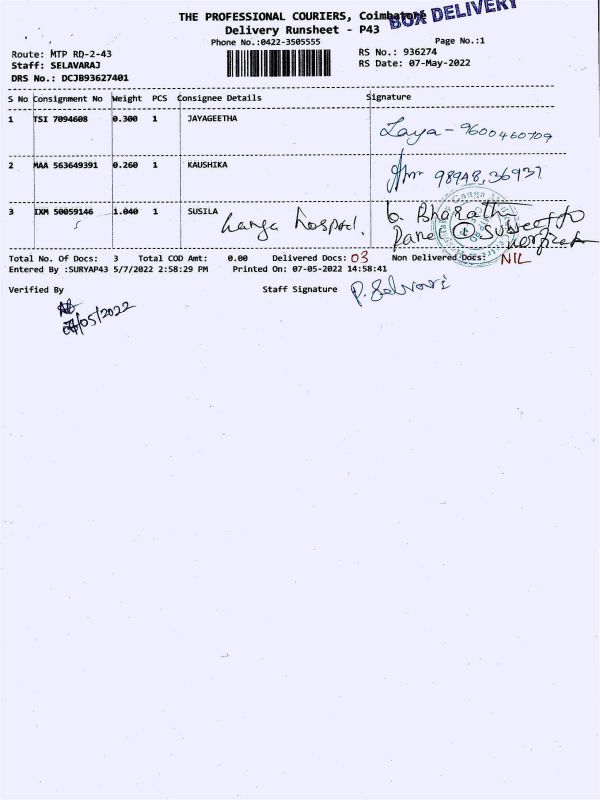 THE PROFESSIONAL COURIERS, Coimbatore
BOX DELIVERY
Delivery Runsheet - P43
Phone No.:0422-3505555
Page No.:1
Route: MTP RD-2-43
RS No.: 936274
Staff: SELAVARAJ
RS Date: 07-May-2022
DRS No.: DCJB93627401
S No Consignment No Weight PCS Consignee Details Signature
1 TSI 7094608 0.300 1 JAYAGEETHA
Laya - 9600460709
2 MAA 563649391 0.260 1 KAUSHIKA
98948,36937
3 IXM 50059146 1.040 1 SUSILA
G. Bharathi
Total No. Of Docs: 3 Total COD Amt: 0.00 Delivered Docs: 03 Non Delivered Docs: NIL
Entered By :SURYAP43 5/7/2022 2:58:29 PM Printed On: 07-05-2022 14:58:41
Verified By Staff Signature P. Selvari
/05/2022